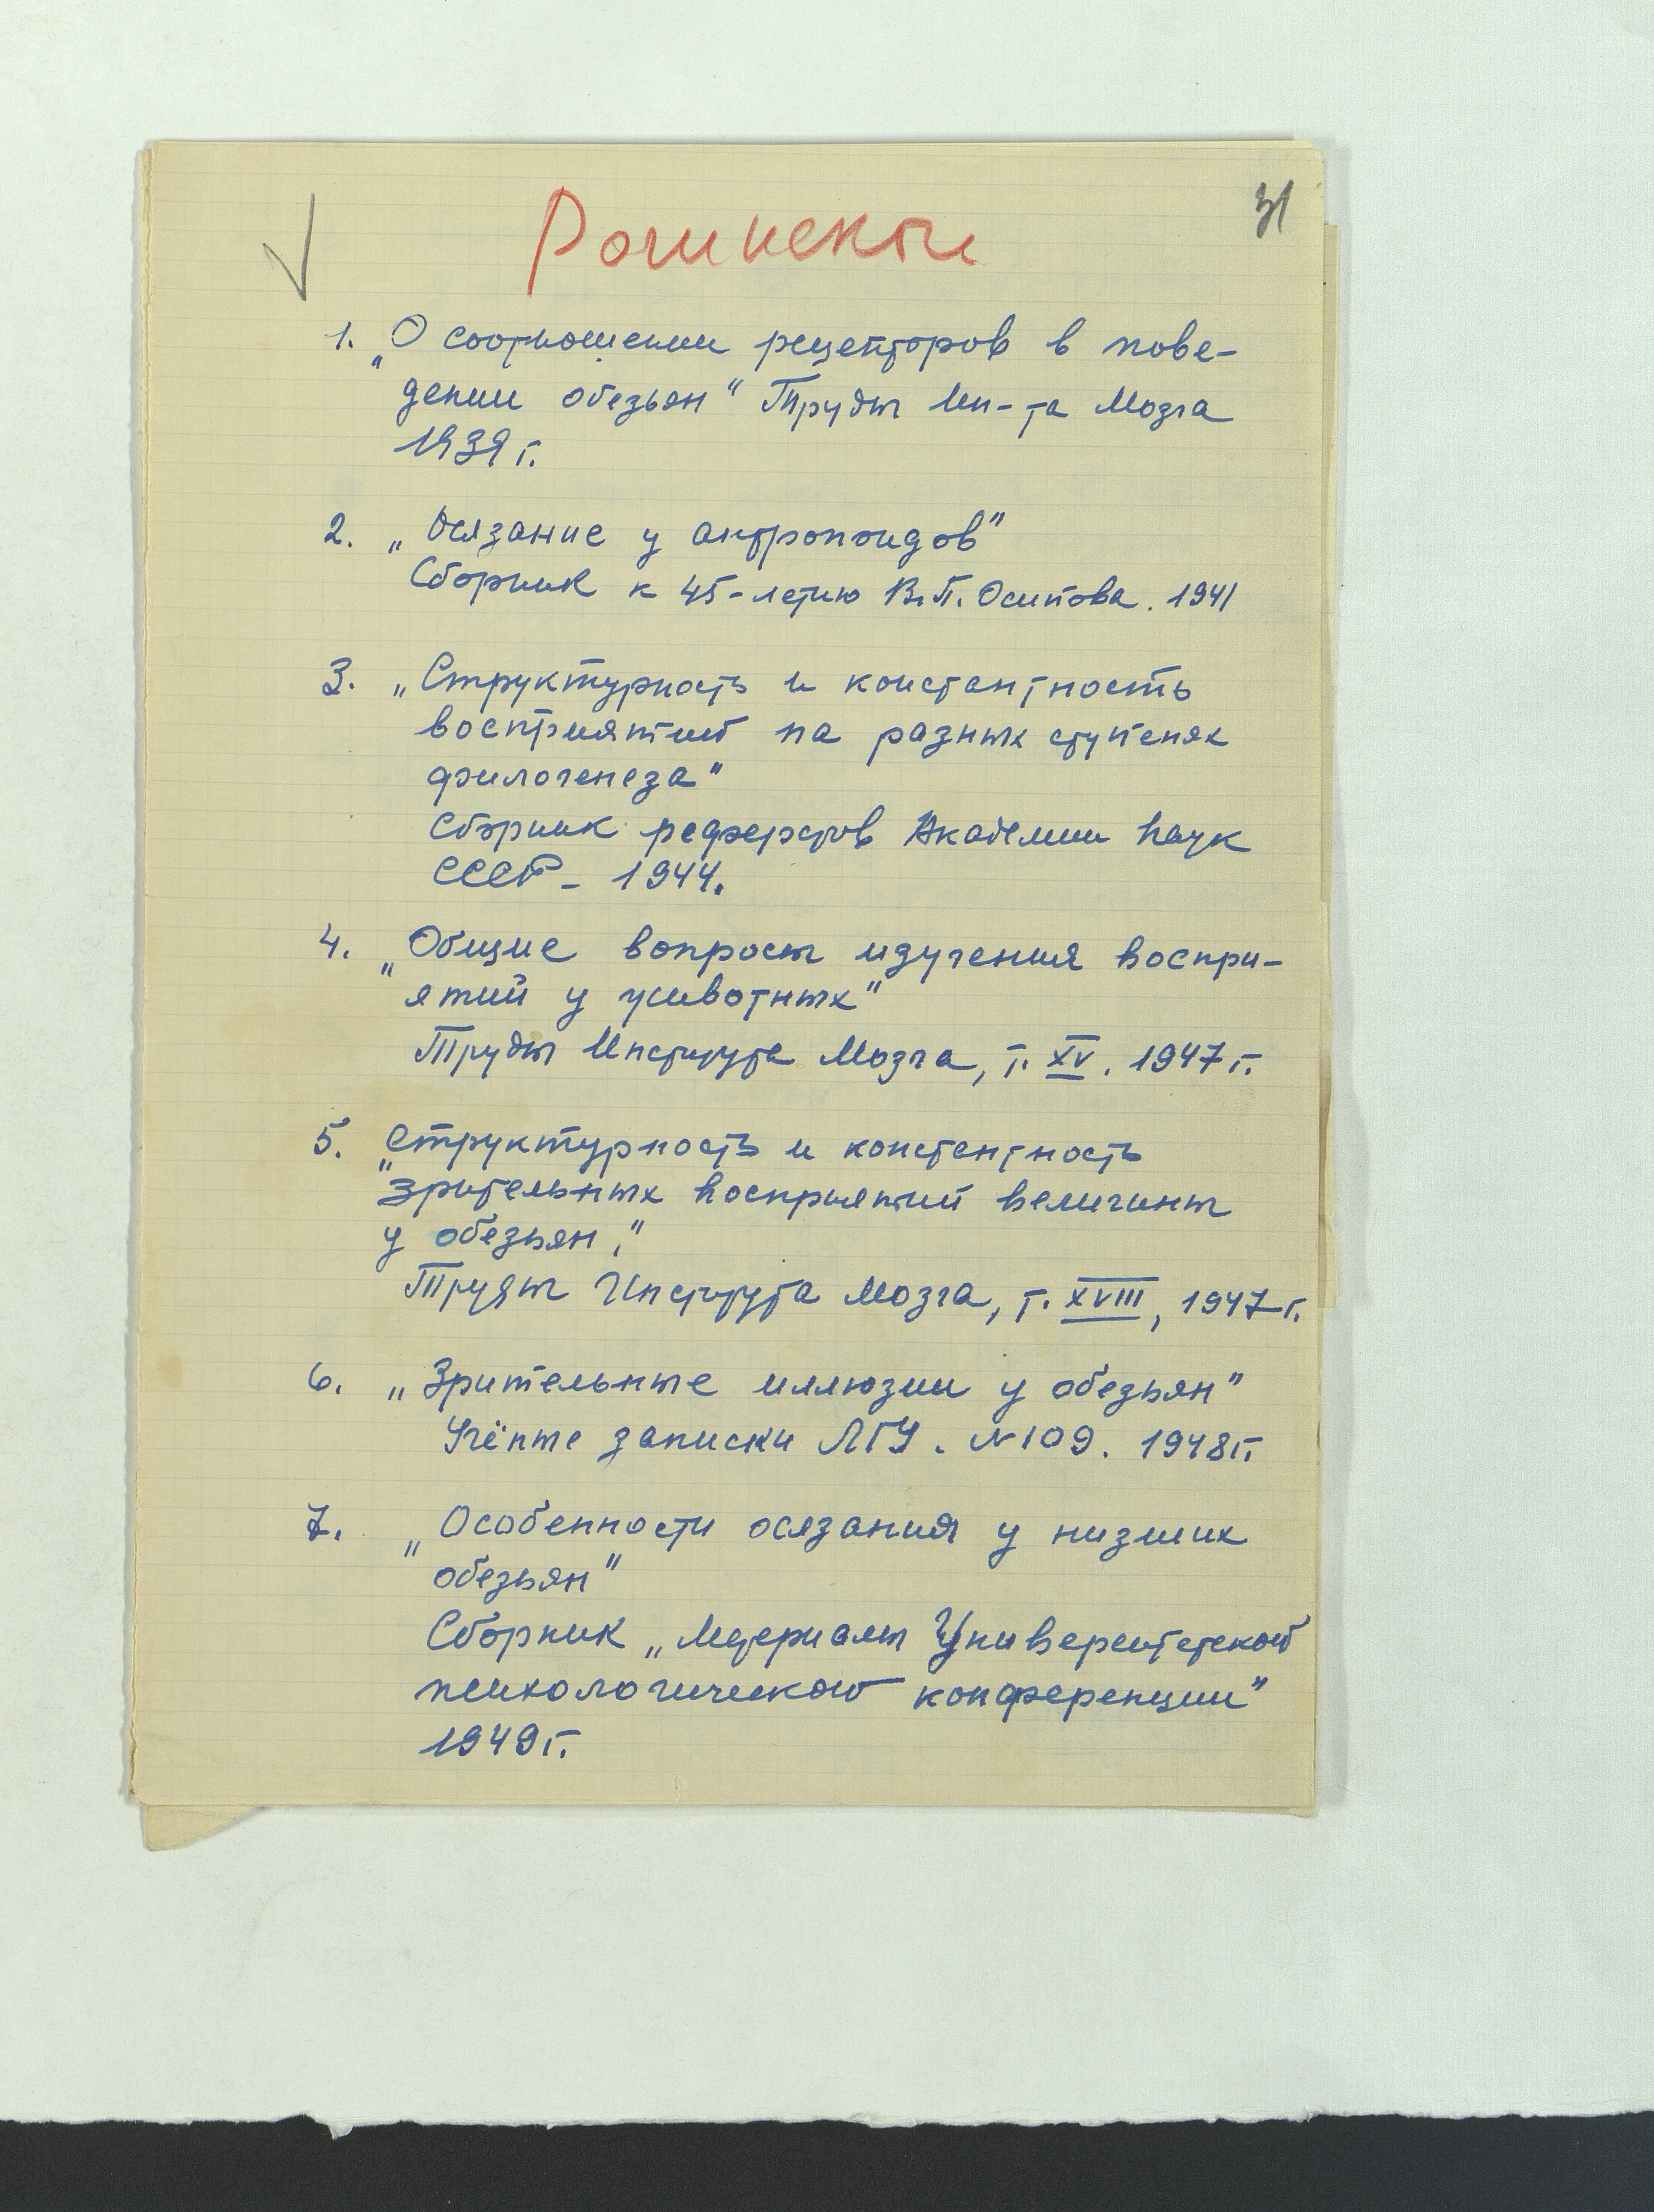 31
Рогинский
1. „О соотношении рецепторов в пове-
дении обезьян" Труды Ин-та Мозга
1939 г.
2. „Осязание у антропоидов"
Сборник к 45-летию В.П. Осипова. 1941
3. „Структурность и константность
восприятий на разных ступенях
филогенеза"
Сборник рефератов Академии Наук
СССР - 1944.
4. „Общие вопросы изучения воспри-
ятий у животных"
Труды Института Мозга, т. XV. 1947 г.
5. „Структурность и константность
зрительных восприятий величины
у обезьян."
Труды Института Мозга, т. XVIII, 1947 г.
6. „Зрительные иллюзии у обезьян"
Учёные записки ЛГУ. N 109. 1948 г.
7. „Особенности осязания у низших
обезьян"
Сборник „Материалы Университетской
психологической конференции"
1949 г.